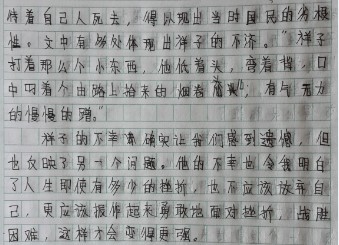 待着自己人死去，得以现出当时国民的劣根
性。文中有多处体现出祥子的不添。“祥子
打着那么个小东西，他低着头，弯着背，口
中叼着个由路上拾来的烟卷 头，有气无力
的慢慢的蹭。”
祥子的不幸流确实让我们感到遗憾，但
也反映了另一个问题。他的不幸也令我明白
了人生即使有多少的挫折，也不应该放弃自
己，更应该振作起来勇敢地面对挫折，战胜
困难，这样才会变得更强。